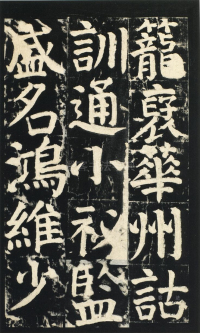 籠褒華州詁
訓通小祕監
盛名鴻維少